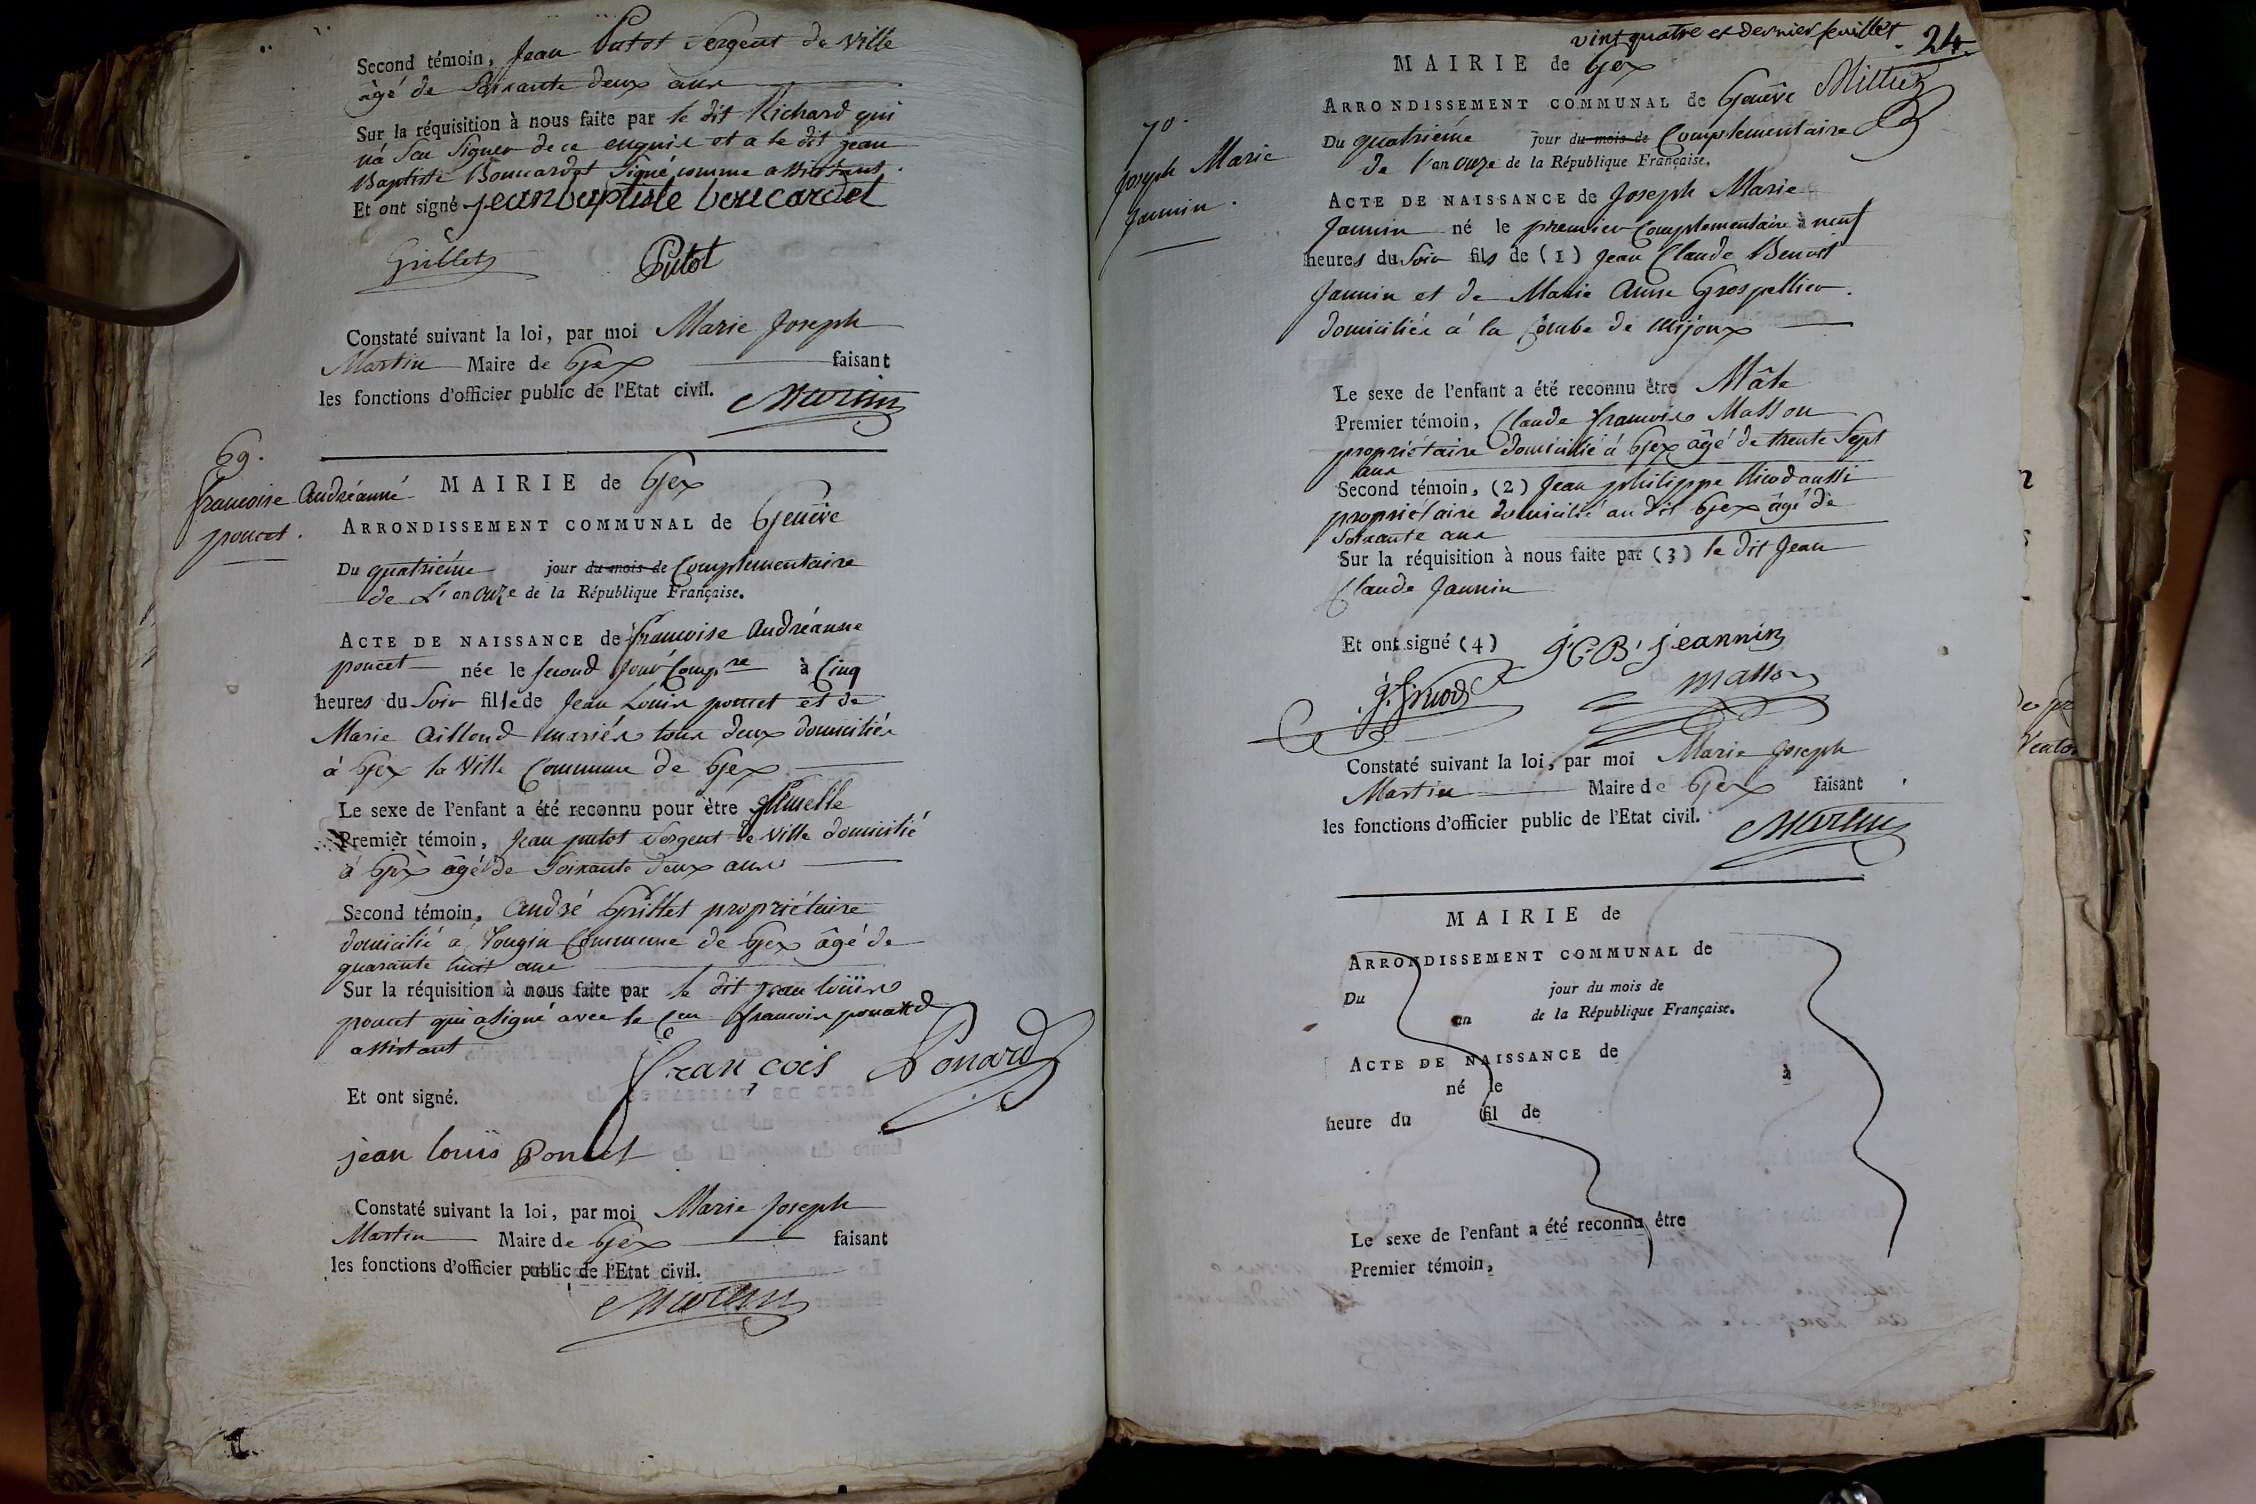 Second témoin, Jean Putot Sergent de Ville
âgé de Soixante deux ans
Sur la réquisition à nous faite par le dit Richard qui
n'a Scu Signer de ce enquis et a le dit jean
Baptiste Bouccardet Signé comme assistant.
Et ont signé jean baptiste boucardet
Grillet Putot
Constaté suivant la loi, par moi Marie Joseph
Martin Maire de Gex faisant
les fonctions d'officier public de l'Etat civil. Martin
69.
francoise Andréanne
poncet.
MAIRIE de Gex
ARRONDISSEMENT COMMUNAL de Genève
Du quatriéme jour du mois de Complementaire
de L'an onze de la République Française.
ACTE DE NAISSANCE de francoise Andréanne
poncet née le second jour Compre à Cinq
heures du Soir fille de Jean Louis poncet et de
Marie Aillond mariés tous deux domiciliés
à Gex la Ville Commune de Gex
Le sexe de l'enfant a été reconnu pour être femelle
Premier témoin, Jean putot Sergent de Ville domicilié
à Gex âgé de Soixante deux ans
Second témoin, André Grillet propriétaire
domicilié à Tougin Commune de Gex âgé de
quarante huit ans
Sur la réquisition à nous faite par le dit jean loüis
poncet qui a signé avec le Cen francois ponard
assistant
françois Ponard
Et ont signé.
jean louis Poncet
Constaté suivant la loi, par moi Marie Joseph
Martin Maire de Gex faisant
les fonctions d'officier public de l'Etat civil.
Martin
vint quatre et dernier feuillet. 24.
MAIRIE de Gex
ARRONDISSEMENT COMMUNAL de Genève
70.
Joseph Marie
Jannin.
Du quatriéme jour du mois de Complementaire
de l'an onze de la République Française.
ACTE DE NAISSANCE de Joseph Marie
Jannin né le premier Complementaire à neuf
heures du Soir fils de (1) Jean Claude Benoit
Jannin et de Marie Anne Grospellier.
domiciliés à la Combe de Mijoux
Le sexe de l'enfant a été reconnu être Mâle
Premier témoin, Claude francois Masson
propriétaire domicilié à Gex âgé de trente Sept
ans
Second témoin, (2) Jean philippe Nicod aussi
propriétaire domicilié au dit Gex âgé de
Soixante ans
Sur la réquisition à nous faite par (3) le dit Jean
Claude Jannin
Et ont signé (4) J.C.B. jeannin
masson
Constaté suivant la loi, par moi Marie Joseph
Martin Maire de Gex faisant
les fonctions d'officier public de l'Etat civil. Martin
MAIRIE de
ARRONDISSEMENT COMMUNAL de
Du jour du mois de
an de la République Française.
ACTE DE NAISSANCE de
né le à
heure du fil de
Le sexe de l'enfant a été reconnu être
Premier témoin,